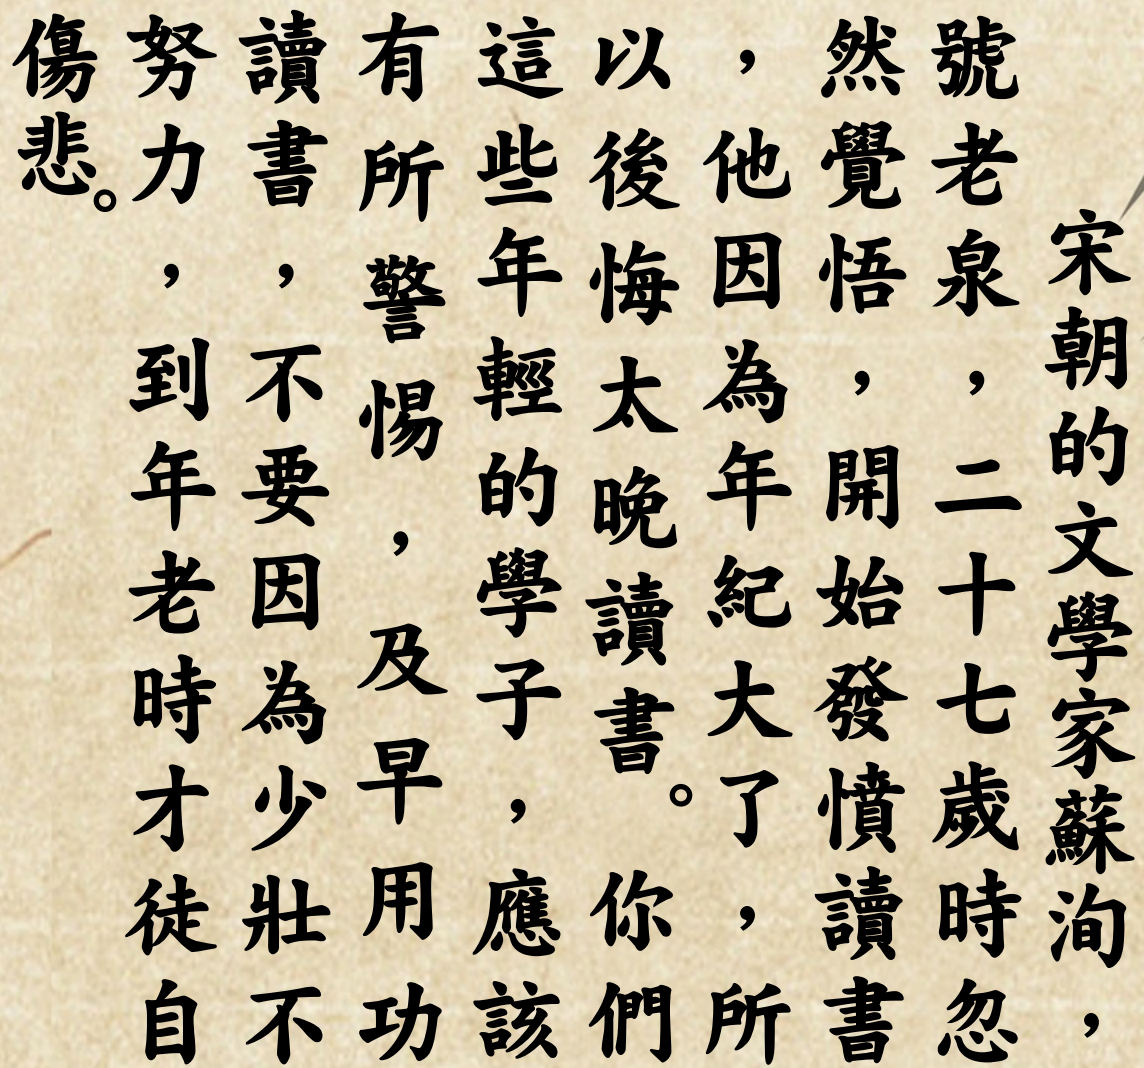 宋朝的文學家蘇洵，
號老泉，二十七歲時忽
然覺悟，開始發憤讀書
，他因為年紀大了，所
以後悔太晚讀書。你們
這些年輕的學子，應該
有所警惕，及早用功
讀書，不要因為少壯不
努力，到年老時才徒自
傷悲。